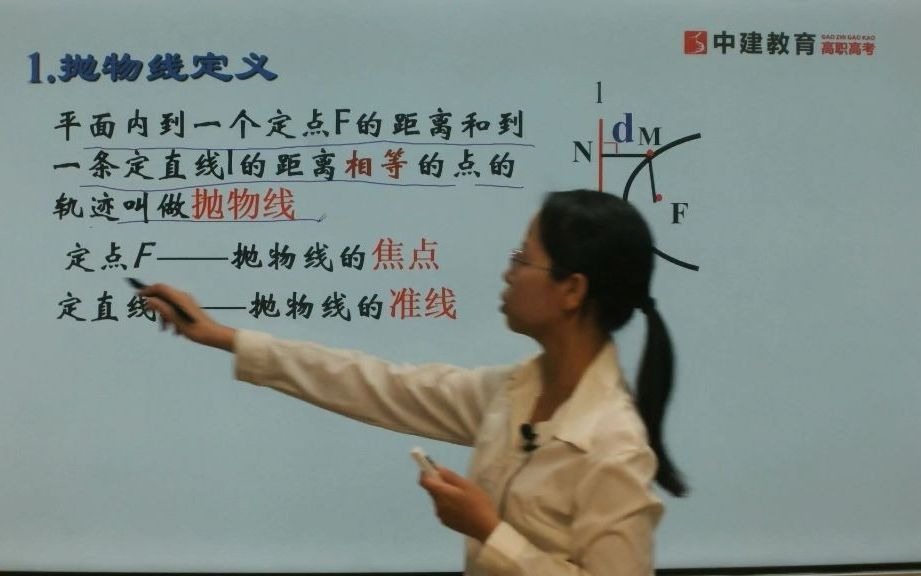 中建教育
GAO ZHI GAO KAO
高职高考
1.抛物线定义
平面内到一个定点F的距离和到
一条定直线l的距离相等的点的
轨迹叫做抛物线
定点F——抛物线的焦点
定直线——抛物线的准线
l
d
M
N
F